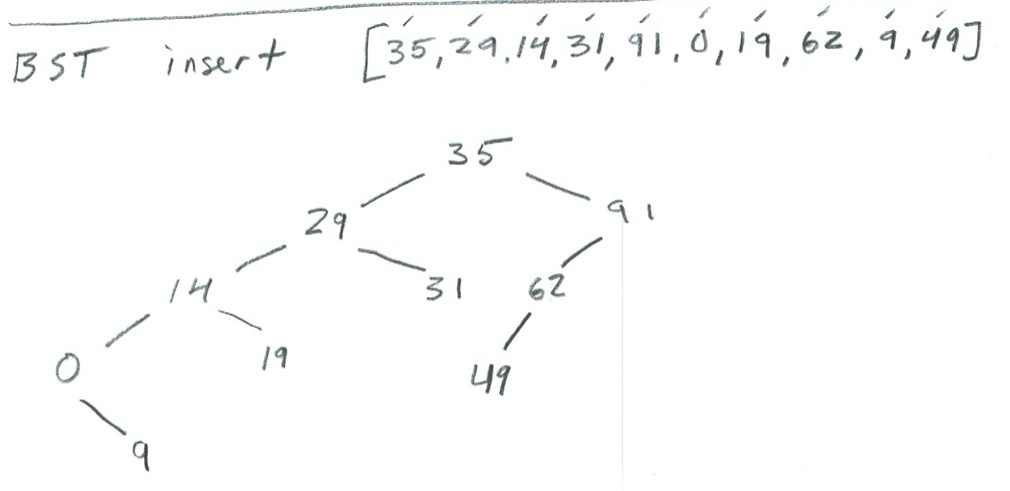 BST insert [35,29,14,31,91,0,19,62,9,49]
35
29 91
14 31 62
0 19 49
9